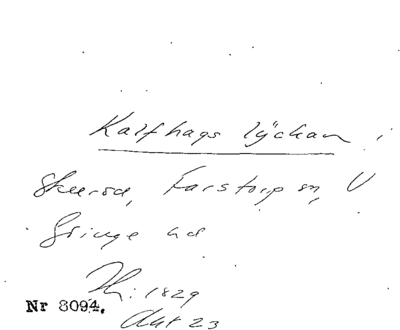 Kalfhags lyckan i
Skeersa, Farstorp sn, V
Göinge hd
H: 1829
Akt 23
Nr 3094.